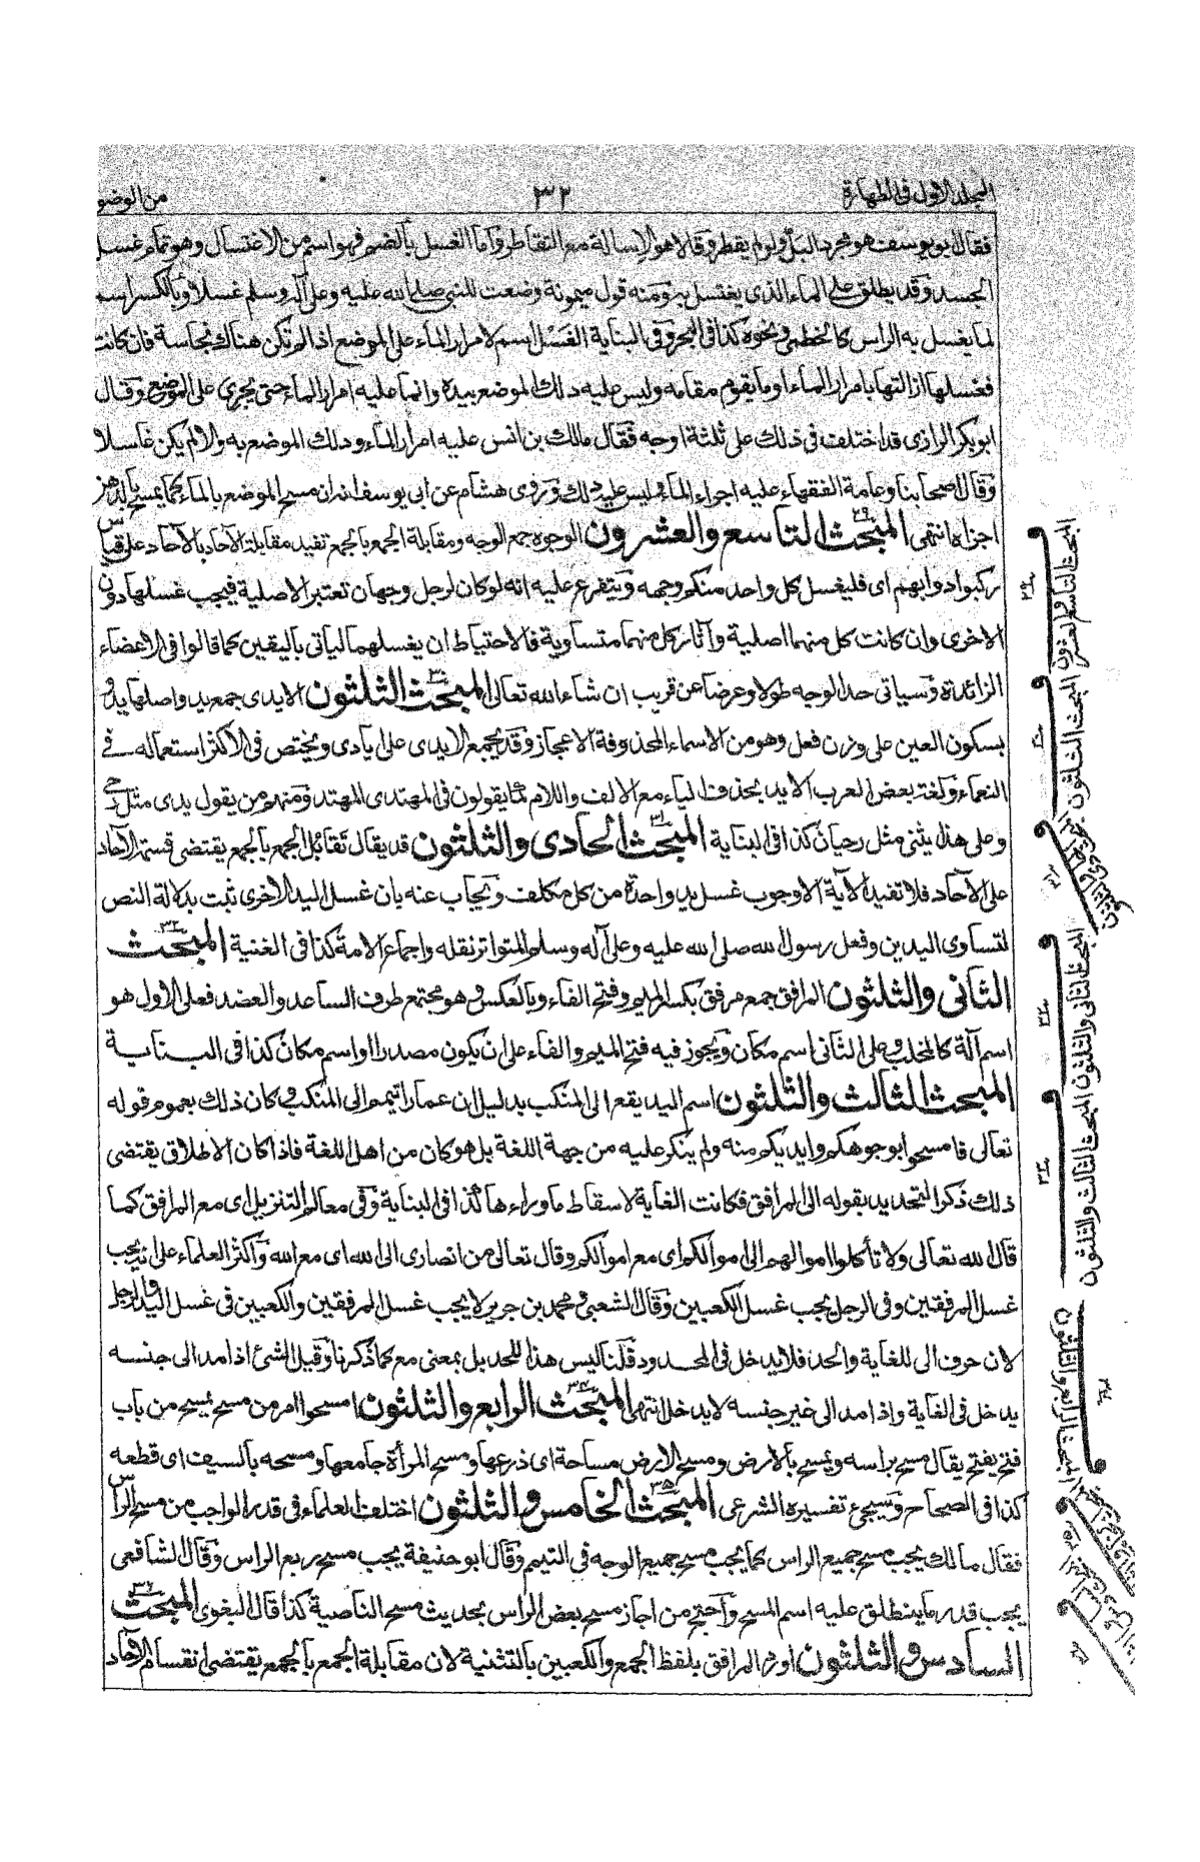 المجلد الاول فى الطهارة
٣٢
من الوضو
فقال ابو يوسف هو مجرد البل ولو لم يقطر وقالا هو الاسالة مع التقاطر واما الغسل بالضم فهو اسم من الاغتسال وهو تمام غسل
الجسد وقد يطلق على الماء الذى يغتسل به ومنه قول ميمونة وضعت للنبى صلى الله عليه وعلى آله وسلم غسلا وبالكسر اسم
لما يغسل به الراس كالخطمى ونحوه كذا فى البحر وفى البناية الغَسْل اسم لامرار الماء على الموضع اذا لم تكن هناك نجاسة فان كانت
فغسلها ازالتها بامرار الماء او ما يقوم مقامه وليس عليه دلك الموضع بيده وانما عليه امرار الماء حتى يجرى على الموضع وقال
ابو بكر الرازى قد اختلف فى ذلك على ثلثة اوجه فقال مالك بن انس عليه امرار الماء ودلك الموضع به والا لم يكن غاسلا
وقال اصحابنا وعامة الفقهاء عليه اجراء الماء وليس عليه دلك وروى هشام عن ابى يوسف انه ان مسح الموضع بالماء كما يمسح بالدهن
اجزاه انتهى المبحث التاسع والعشرون ٢٩ الوجوه جمع الوجه ومقابلة الجمع بالجمع تفيد مقابلة الآحاد بالآحاد على قياس
ركبوا دوابهم اى فليغسل كل واحد منكم وجهه ويتفرع عليه انه لو كان لرجل وجهان تعتبر الاصلية فيجب غسلها دون
الاخرى وان كانت كل منهما اصلية وآثار كل منهما متساوية فالاحتياط ان يغسلهما لياتى باليقين كما قالوا فى الاعضاء
الزائدة وسياتى حد الوجه طولا وعرضا عن قريب ان شاء الله تعالى المبحث الثلثون ٣٠ الايدى جمع يد واصلها يدى
بسكون العين على وزن فعل وهو من الاسماء المحذوفة الاعجاز وقد يجمع الايدى على ايادى ويختص فى الاكثر استعماله فى
النعماء ولغة بعض العرب الايد بحذف الياء مع الالف واللام كما يقولون فى المهتدى المهتد ومنهم من يقول يدى مثل رحى
وعلى هذا يثنى مثل رحيان كذا فى البناية المبحث الحادى والثلثون ٣١ قد يقال تقابُل الجمع بالجمع يقتضى قسمة الآحاد
على الآحاد فلا تفيد الآية الا وجوب غسل يد واحدة من كل مكلف ويجاب عنه بان غسل اليد الاخرى ثبت بدلالة النص
لتساوى اليدين وفعل رسول الله صلى الله عليه وعلى آله وسلم المتواتر نقله واجماع الامة كذا فى الغنية المبحث
الثانى والثلثون ٣٢ المرافق جمع مرفق بكسر الميم وفتح الفاء وبالعكس وهو مجتمع طرف الساعد والعضد فعلى الاول هو
اسم آلة كالمخلب وعلى الثانى اسم مكان ويجوز فيه فتح الميم والفاء على ان يكون مصدرا او اسم مكان كذا فى البناية
المبحث الثالث والثلثون اسم اليد يقع الى المنكب بدليل ان عمارا تيمم الى المنكب وكان ذلك بعموم قوله
تعالى فامسحوا بوجوهكم وايديكم منه ولم ينكر عليه من جهة اللغة بل هو كان من اهل اللغة فاذا كان الاطلاق يقتضى
ذلك ذكر التحديد بقوله الى المرافق فكانت الغاية لاسقاط ما وراءها كذا فى البناية وفى معالم التنزيل اى مع المرافق كما
قال الله تعالى ولا تأكلوا اموالهم الى اموالكم اى مع اموالكم وقال تعالى من انصارى الى الله اى مع الله واكثر العلماء على انه يجب
غسل المرفقين وفى الرجل يجب غسل الكعبين وقال الشعبى ومحمد بن جرير لا يجب غسل المرفقين والكعبين فى غسل اليد والرجل
لان حرف الى للغاية والحد فلا يدخل فى المحدود قلنا ليس هذا للحد بل بمعنى مع كما ذكرنا وقيل الشئ اذا مد الى جنسه
يدخل فى الغاية واذا مد الى غير جنسه لا يدخل انتهى المبحث الرابع والثلثون ٣٤ امسحوا امر من مسح يمسح من باب
فتح يفتح يقال مسح براسه ويمسح بالارض ومسح الارض مساحة اى ذرعها ومسح المرأة جامعها ومسحه بالسيف اى قطعه
كذا فى الصحاح وسيجئ تفسيره الشرعى المبحث الخامس والثلثون ٣٥ اختلف العلماء فى قدر الواجب من مسح الراس
فقال مالك يجب مسح جميع الراس كما يجب مسح جميع الوجه فى التيمم وقال ابو حنيفة يجب مسح ربع الراس وقال الشافعى
يجب قدر ما ينطلق عليه اسم المسح واحتج من اجاز مسح بعض الراس بحديث مسح الناصية كذا قال البغوى المبحث
السادس والثلثون ٣٦ اورد المرافق بلفظ الجمع والكعبين بالتثنية لان مقابلة الجمع بالجمع يقتضى انقسام الآحاد
المبحث التاسع والعشرون
٢٩
المبحث الثلثون
٣٠
المبحث الحادى والثلثون
٣١
المبحث الثانى والثلثون
٣٢
المبحث الثالث والثلثون
٣٣
المبحث الرابع والثلثون
٣٤
٣٥
٣٦